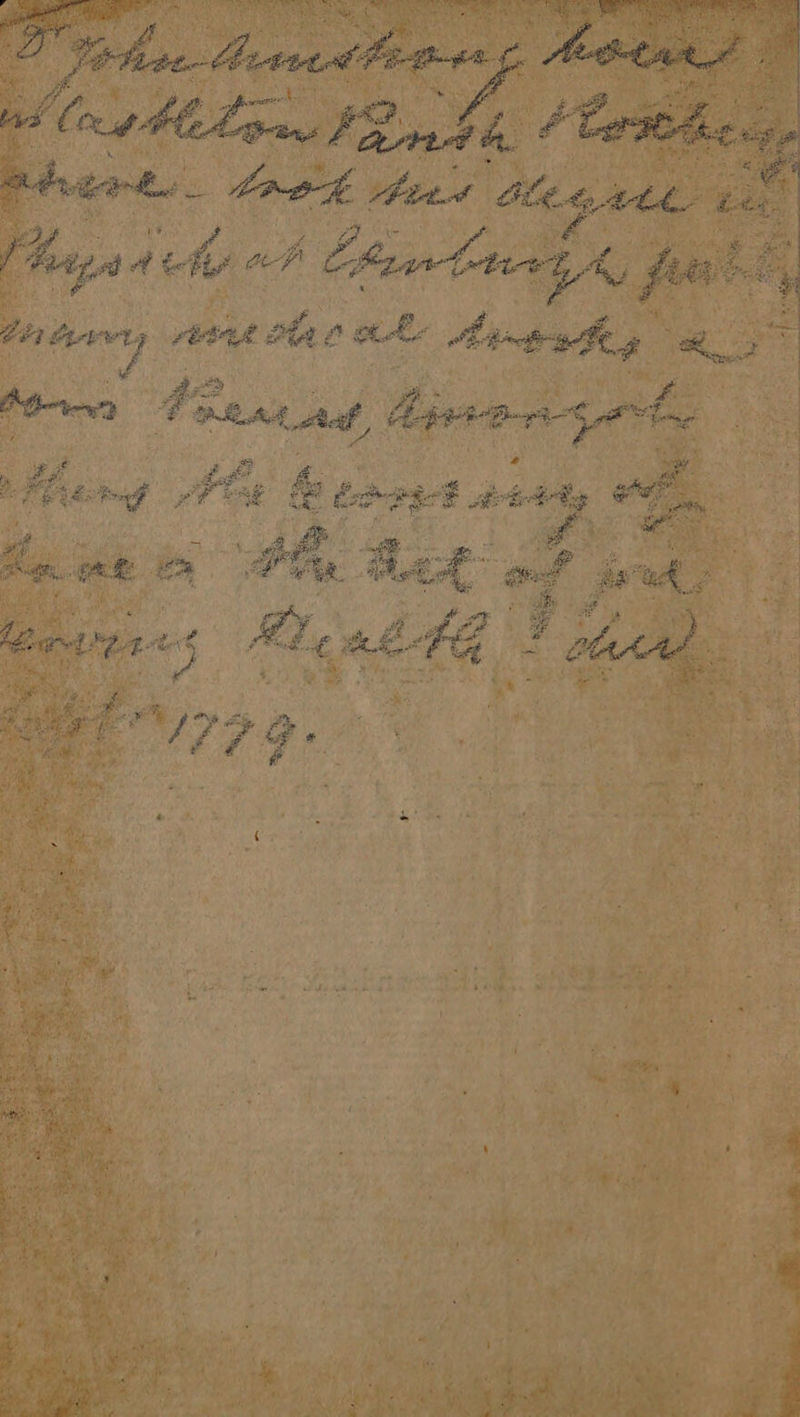 Dr John Armstrong born
in Castleton Parish Roxburg
shire - took his degree in
Physick at Edinburgh, publi
many medical works &
som Poems, Amongst
others the Economy of
Love & the Art of pre
serving Health - died
Septr 1779.